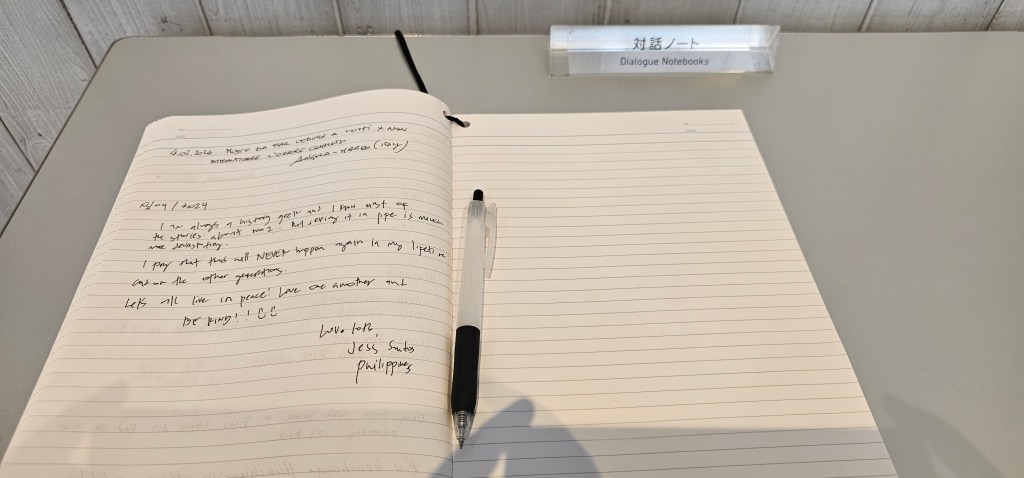 対話ノート
Dialogue Notebooks
4.02.2024 MUSEO DA FAR VEDERE A TUTTI X NON
DIMENTICARE COMMESSO
ANGELA - MARCO (ITALY)
/04/2024
I am always a history geek and I know most of
the stories about WW2. But seeing it in life is much
more devastating.
I pray that this will NEVER happen again in my lifetime
and on the other generations.
Lets all live in peace! Love one another and
BE KIND!!
Love lots,
Jess Santos
Philippines